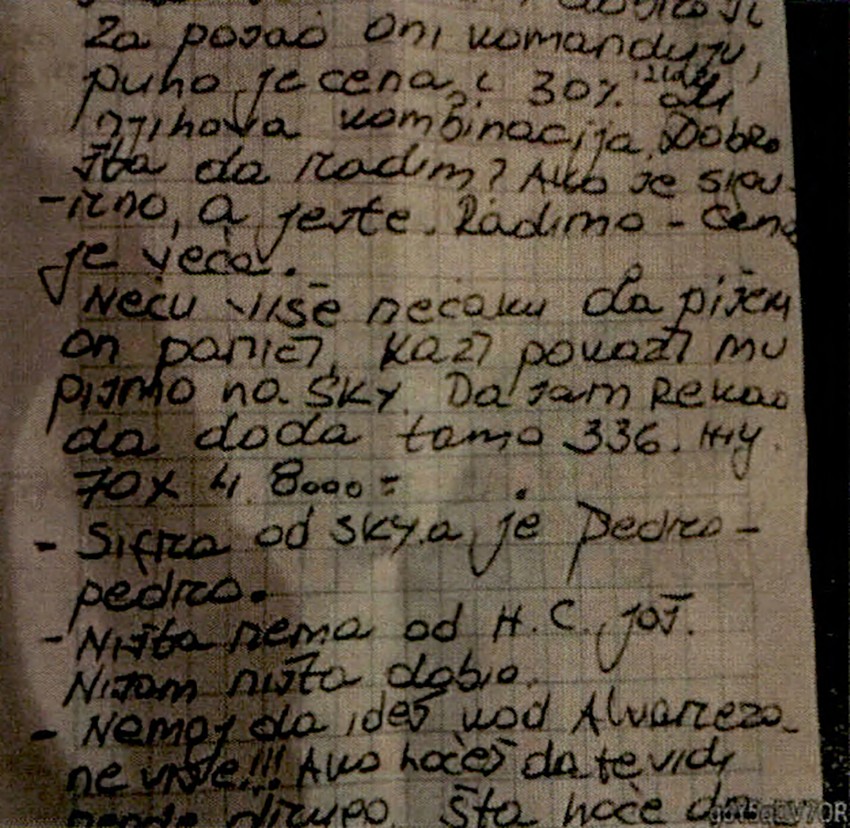 za posao oni komanduju,
puno je cena, i 30%
njihova kombinacija. Dobro
šta da radim? Ako je sigu-
-irno, a jeste. Radimo - cena
je veća.
Neću više nećaku da pišem
on paniči, kaži pokaži mu
pismo na SKY. Da sam rekao
da doda tamo 336.
70x 4. 8000=
- Šifra od SKY.a je pedro-
pedro.
- Ništa nema od H.C. još.
Nisam ništa dobio.
- Nemoj da ideš kod Alvareza
ne više!!! Ako hoćeš da te vidi
šta hoće da